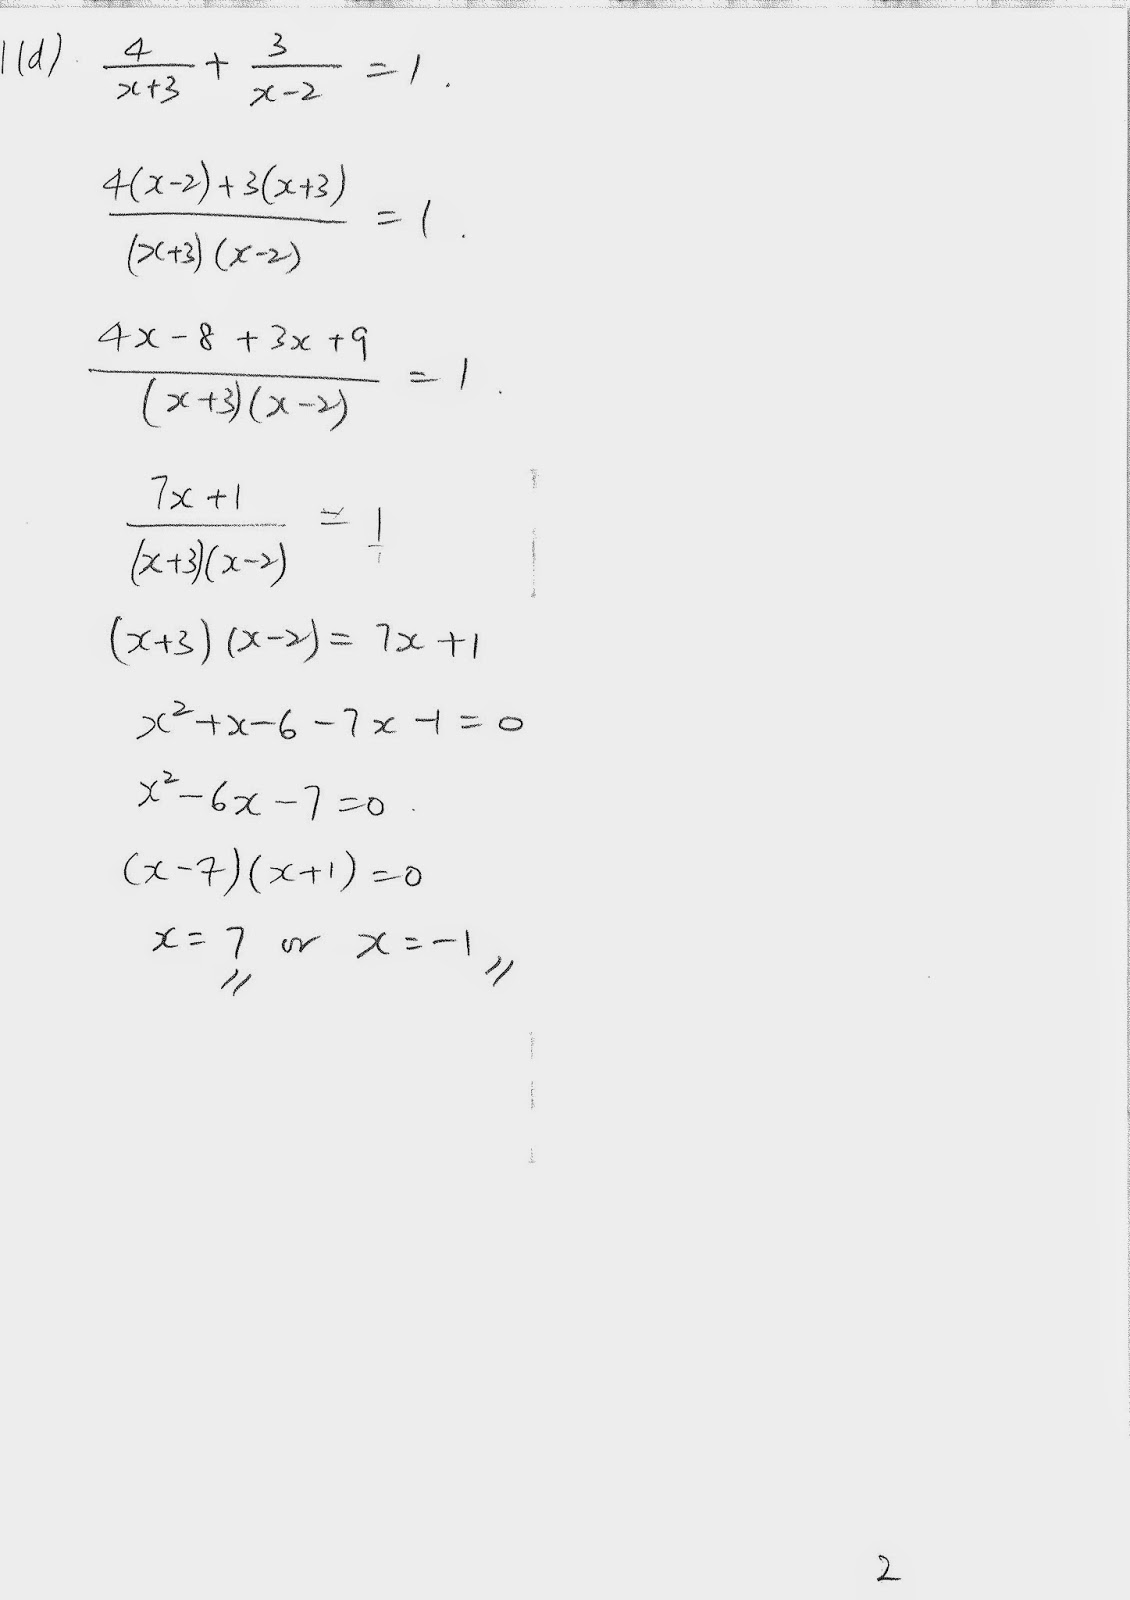 1(d). 4/(x+3) + 3/(x-2) = 1.
(4(x-2)+3(x+3))/((x+3)(x-2)) = 1.
(4x-8+3x+9)/((x+3)(x-2)) = 1.
(7x+1)/((x+3)(x-2)) = 1/1
(x+3)(x-2) = 7x+1
x²+x-6-7x-1=0
x²-6x-7=0.
(x-7)(x+1)=0
x=7 or x=-1
2